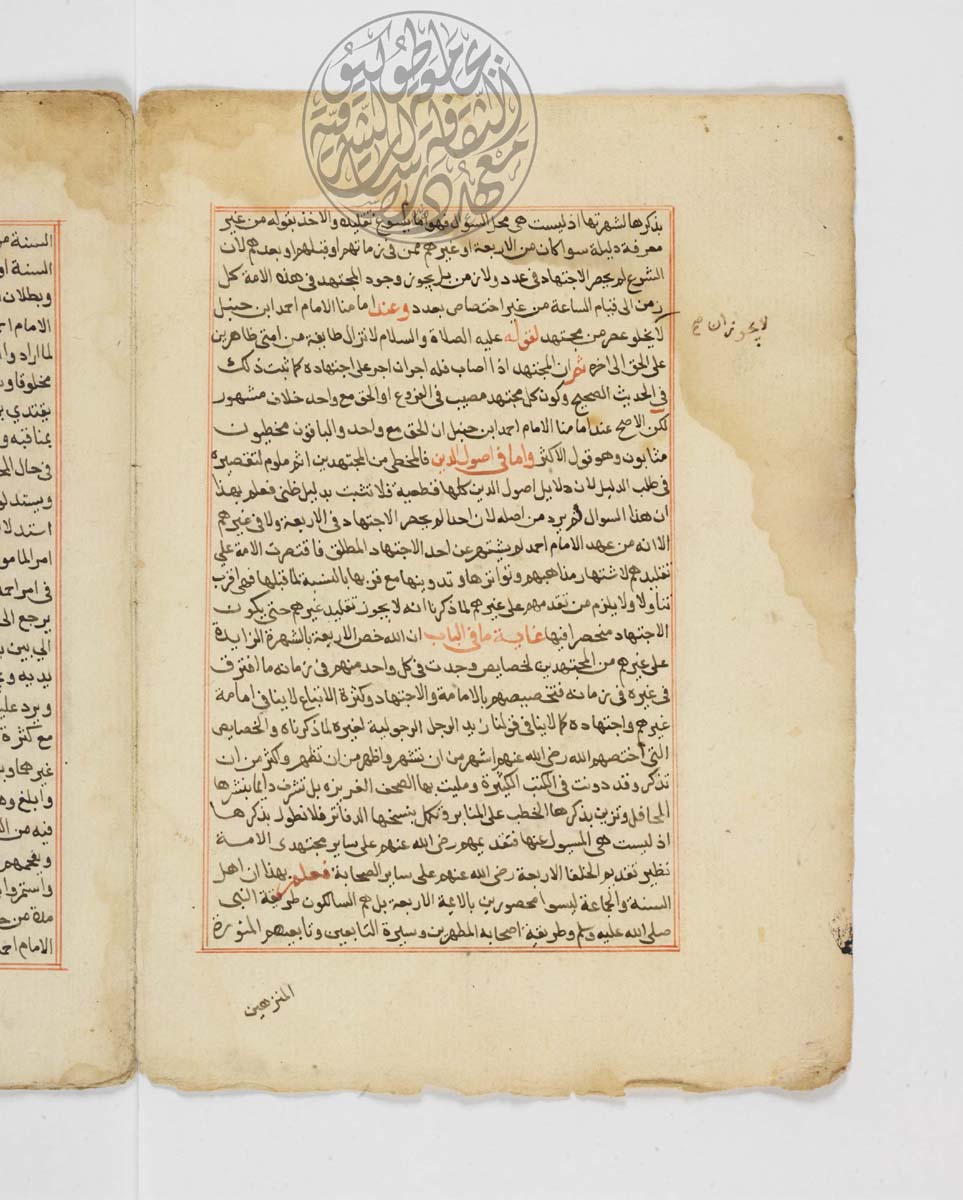 بذكرها لشهرتها اذ ليست هي محل السوال فهو انما يسوغ تقليده والاخذ بقوله من غير
معرفة دليله سوا كان من الاربعة او غيرهم ممن في زمانهم او قبلهم او بعدهم لان
الشرع لم يحصر الاجتهاد في عدد ولا زمن بل يجوز وجود المجتهد في هذه الامة كل
زمن الى قيام الساعة من غير اختصاص بعدد وعند امامنا الامام احمد ابن حنبل
لا يخلو عصر من مجتهد لقوله عليه الصلاة والسلام لا تزال طايفة من امتي ظاهرين
على الحق الى اخره ثم ان المجتهد اذا اصاب فله اجران اجر على اجتهاده كما ثبت ذلك
في الحديث الصحيح وكون كل مجتهد مصيب في الفروع او الحق مع واحد خلاف مشهور
لكن الاصح عند امامنا الامام احمد ابن حنبل ان الحق مع واحد والباقون مخطيون
مثابون وهو قول الاكثر واما في اصول الدين فالمخطي من المجتهدين اثم ملوم لتقصيره
في طلب الدليل لان دلايل اصول الدين كلها قطعية فلا تثبت بدليل ظني فعلم بهذا
ان هذا السوال لم يرد من اصله لان احدا لم يحصر الاجتهاد في الاربعة ولا في غيرهم
الا انه من عهد الامام احمد لم يشتهر عن احد الاجتهاد المطلق فاقتصرت الامة على
تقليدهم لاشتهار مذاهبهم وتواترها وتدوينها مع قربها بالنسبة لما قبلها فهي اقرب
تناولا ولا يلزم من تقدمهم على غيرهم لما ذكرنا انه لا يجوز تقليد غيرهم حتى يكون
الاجتهاد منحصرا فيها غاية ما في الباب ان الله خص الاربعة بالشهرة الزايدة
على غيرهم من المجتهدين لخصايص وجدت في كل واحد منهم في زمانه ما افترق
في غيره في زمانه فتخصيصهم بالامامة والاجتهاد وكثرة الاتباع لا ينافي امامة
غيرهم واجتهاده كما لا ينافي قولنا زيد الرجل الرجولية لغيره لما ذكرناه والخصايص
التي اختصهم الله رضي الله عنهم اشهر من ان تشهر واظهر من ان تظهر وكثر من ان
تذكر وقد دونت في الكتب الكثيرة ومليت بها الصحف الغزيزه بل تشرف دائما بنشرها
المحافل وتزين بذكرها الخطب على المنابر وتكمل بنسخها الدفاتر فلا نطول بذكرها
اذ ليست هي المسيول عنها فتقديمهم رضي الله عنهم على ساير مجتهدي الامة
نظير تقديم الخلفا الاربعة رضي الله عنهم على ساير الصحابة فعلم بهذا ان اهل
السنة والجماعة ليسوا محصورين بالايمة الاربعة بل هم السالكون طريقة النبي
صلى الله عليه وسلم وطريقة اصحابه المطهرين وسيرة التابعين وتابعيهم
المنزهين
لا يجوز ان صح
السنة
السنة او
وبطلان
الامام
لما اراد
يقتدي
بمناقبه
في حال
ويستدل
استدلا
امر المامو
في امر احمد
يرجع الى
يديه و
ويرد عليه
مع كثرة
وابلغ وهـ
فيه من
مدة من
الامام احمـ
جامعة طوكيو
معهد دراسات الثقافة الشرقية